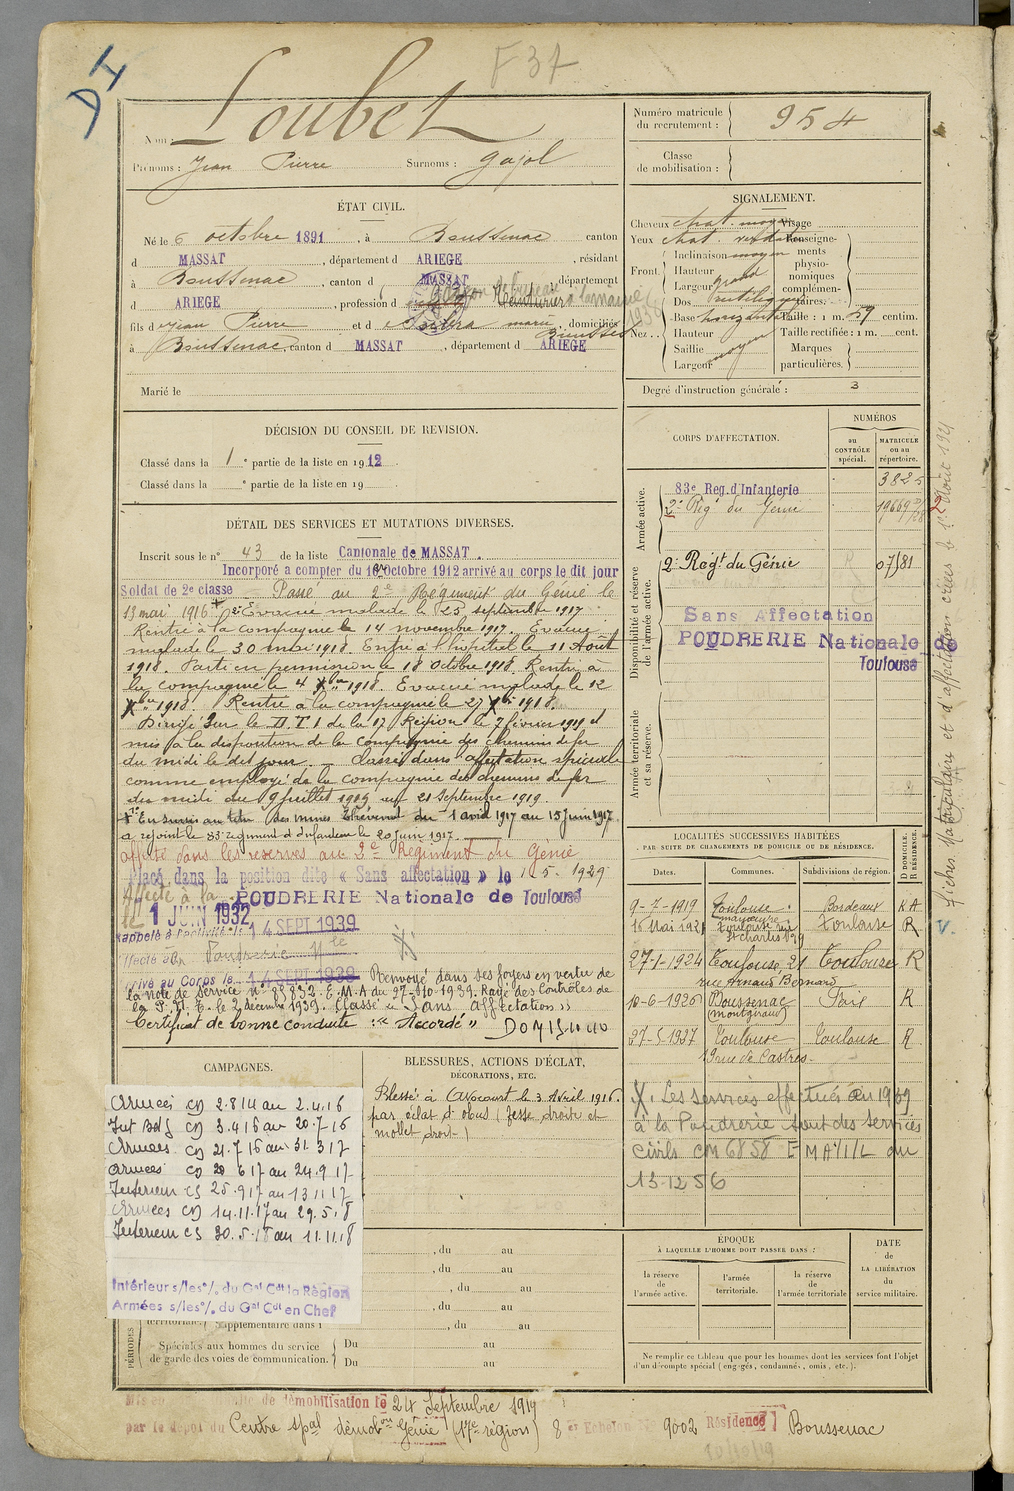 F 37
Nom : Loubet
Prénoms : Jean Pierre Surnoms : Gajol
Numéro matricule du recrutement : 954
Classe de mobilisation :
ÉTAT CIVIL.
Né le 6 octobre 1891, à Boussenac canton
d MASSAT, département d ARIEGE, résidant
à Boussenac, canton d MASSAT, département
d ARIEGE, profession d
fils d Jean Pierre et d marie, domiciliés
à Boussenac, canton d MASSAT, département d ARIEGE
Marié le
SIGNALEMENT.
Cheveux chat. moyen Visage
Yeux chat. Renseigne-
Front. Inclinaison moyen ments
Hauteur physio-
Largeur grand nomiques
complémen-
Nez. Dos rectiligne taires.
Base horizontale Taille : 1 m. 59 centim.
Hauteur Taille rectifiée : 1 m. cent.
Saillie Marques
Largeur moyen particulières.
Degré d'instruction générale : 3
DÉCISION DU CONSEIL DE REVISION.
Classé dans la 1e partie de la liste en 1912
Classé dans la e partie de la liste en 19
CORPS D'AFFECTATION.
NUMÉROS
au CONTRÔLE spécial.
MATRICULE ou au répertoire.
Armée active.
83e Reg. d'Infanterie 3825
2e Regt du Génie 19669
Disponibilité et réserve de l'armée active.
2e Régt du Génie 07581
Sans Affectation
POUDRERIE Nationale de
Toulouse
Armée territoriale et sa réserve.
DÉTAIL DES SERVICES ET MUTATIONS DIVERSES.
Inscrit sous le n° 43 de la liste Cantonale de MASSAT.
Incorporé a compter du 10 Octobre 1912 arrivé au corps le dit jour
Soldat de 2e classe Passé au 2e Régiment du Génie le
13 mai 1916. Evacué malade le 25 septembre 1917
Rentré à la compagnie le 14 novembre 1917. Evacué
malade le 30 mai 1918. Entré à l'hôpital le 11 Août
1918. Parti en permission le 18 Octobre 1918. Rentré à
la compagnie le 4 Xbre 1918. Evacué malade le 12
Xbre 1918. Rentré à la compagnie le 27 Xbre 1918.
Dirigé sur le D.T.I de la 17e Région le 7 février 1919 et
mis à la disposition de la Compagnie des chemins de fer
du midi le dit jour. Classé dans affectation spéciale
comme employé de la compagnie des chemins de fer
du midi du 9 juillet 1919 au 21 septembre 1919.
En sursis au titre des mines Thévenot du 1 avril 1917 au 15 juin 1917
a rejoint le 83e régiment d'infanterie le 20 juin 1917.
affecté dans les réserves au 2e Régiment du Génie
Placé dans la position dite « Sans affectation » le 1. 5. 1929
Affecté à la POUDRERIE Nationale de Toulouse
le 1 JUIN 1932
Rappelé à l'activité le 14 SEPT 1939
Affecté à la Poudrerie Nle
Arrivé au Corps le 14 SEPT 1939 Renvoyé dans ses foyers en vertu de
la note de service n° 83832. E.M.A du 27-10-1939. Rayé des Contrôles de
la P.N.T. le 2 décembre 1939. Classé « Sans affectation »
Certificat de bonne conduite : « Accordé »
LOCALITÉS SUCCESSIVES HABITÉES
PAR SUITE DE CHANGEMENTS DE DOMICILE OU DE RÉSIDENCE.
Dates. Communes. Subdivisions de région. D DOMICILE. R RÉSIDENCE.
9-7-1919 Toulouse Bordeaux
16 Mai 1921 Toulouse rue St Charles Toulouse R
27-1-1924 Toulouse, 21 rue Arnaud Bernard Toulouse R
10-6-1926 Boussenac (montgiraud) Foix R
27-5-1927 Toulouse 19 rue de Castres Toulouse R
X. Les services effectués en 1939
à la Poudrerie sont des services
civils CM 6858 EMA/1/L du
13-12-56
Fiches Matriculaire et d'affectation créées le 1er Août 1921
CAMPAGNES.
Armées CD 2.8.14 au 2.4.16
Int Bdg CD 3.4.16 au 20.7.16
Armées CD 21.7.16 au 31.3.17
Armées CD 20.6.17 au 24.9.17
Interieur CS 25.9.17 au 13.11.17
Armées CD 14.11.17 au 29.5.18
Interieur CS 30.5.18 au 11.11.18
Intérieur s/les °/. du Gal Cdt la Région
Armées s/les °/. du Gal Cdt en Chef
BLESSURES, ACTIONS D'ÉCLAT,
DÉCORATIONS, ETC.
Blessé à Avocourt le 3 Avril 1916.
par éclat d'obus (fesse droite et
mollet droit)
, du au
, du au
, du au
, du au
territoriale. Supplémentaire dans l , du au
PÉRIODES
Spéciales aux hommes du service Du au
de garde des voies de communication. Du au
ÉPOQUE
À LAQUELLE L'HOMME DOIT PASSER DANS :
la réserve de l'armée active.
l'armée territoriale.
la réserve de l'armée territoriale
DATE de LA LIBÉRATION du service militaire.
Ne remplir ce tableau que pour les hommes dont les services font l'objet
d'un décompte spécial (engagés, condamnés, omis, etc.).
de démobilisation le 24 Septembre 1919
par le dépôt du Centre spal démobon Génie (17e région) 8 er Echelon N° 9002 Résidence Boussenac